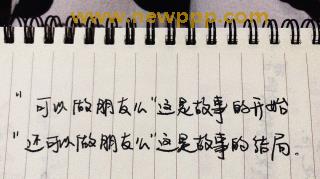 www.newppp.com
"可以做朋友么"这是故事的开始
"还可以做朋友么"这是故事的结局。